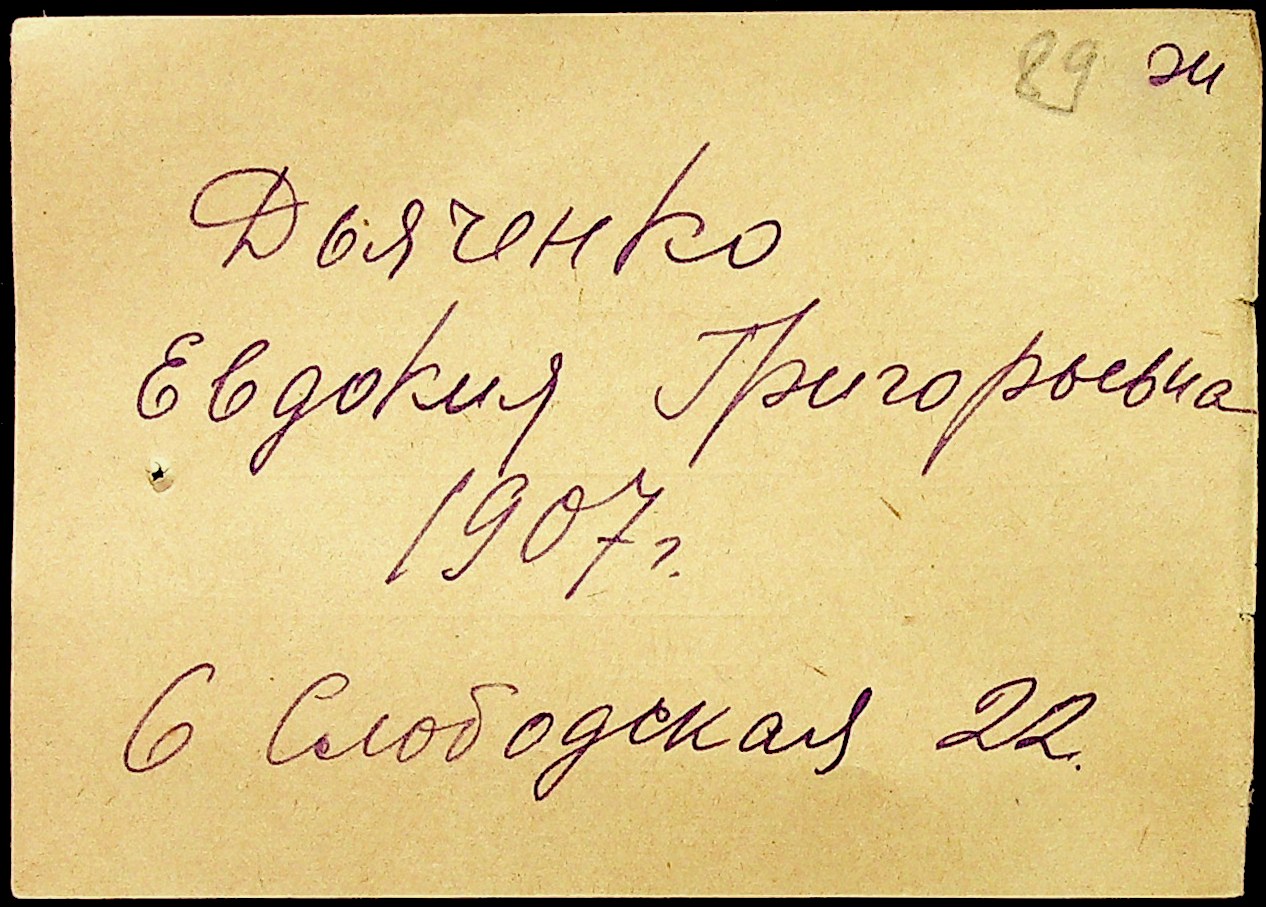 89 ж
Дьяченко
Евдокия Григорьевна
1907 г.
6 Слободская 22.